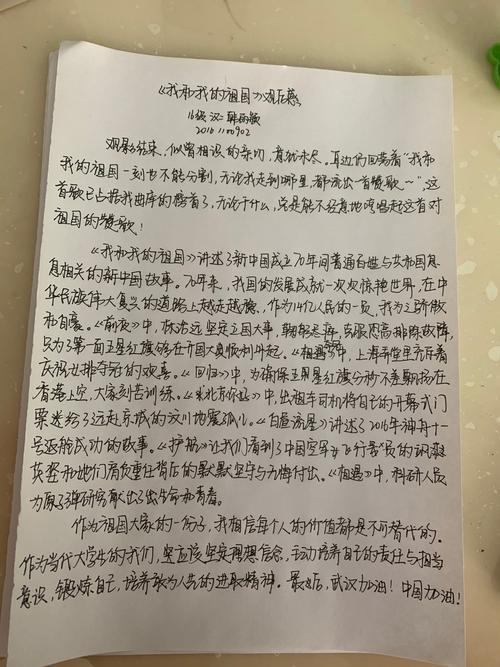 《我和我的祖国》观后感
16级 汉二 韩雨敏
2016110902
观影结束，似曾相识的亲切，意犹未尽。耳边仍回荡着“我和
我的祖国一刻也不能分割，无论我走到哪里，都流出一首赞歌~”，这
首歌已占据我曲库的榜首了，无论干什么，总是能不经意地哼唱起这首对
祖国的赞歌！
《我和我的祖国》讲述了新中国成立70年间普通百姓与共和国息
息相关的新中国故事。70年来，我国的发展成就一次次惊艳世界，在中
华民族伟大复兴的道路上越走越稳，作为14亿人民的一员，我为之骄傲
和自豪。《前夜》中，林治远坚定立国大事，克服恐高排除故障，
只为了第一面五星红旗能在开国大典顺利升起。《夺冠》中，上海弄堂里充斥着
庆祝女排夺冠的欢喜。《回归》中，为确保五星红旗分秒不差飘扬在
香港上空，大家刻苦训练。《北京你好》中，出租车司机将自己的开幕式门
票送给了远赴京城的汶川地震孤儿。《白昼流星》讲述了2016年神舟十一
号返航成功的故事。《护航》让我们看到了中国空军女飞行员的飒爽
英姿和她们肩负重任背后的默默坚守与无悔付出。《相遇》中，科研人员
为原子弹研究献出了生命和青春。
作为祖国大家的一份子，我相信每个人的价值都是不可替代的。
作为当代大学生的我们，更应该坚定理想信念，主动培养自己的责任与担当
意识，锻炼自己，培养敢为人先的进取精神。最后，武汉加油！中国加油！